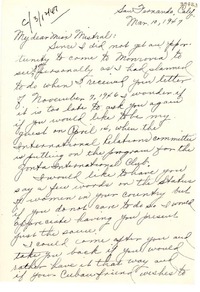 San Fernando, Calif.
Mar. 10, 1947
My dear Miss Mistral:
Since I did not get an oppor-
tunity to come to Monrovia to
see personally as I had planned
to do when I received your letter
of November 7, 1946 I wonder if
it is too late to ask you again
if you would like to be my
guest on April 16, when the
International Relations Committee
is putting on the program for the
Zonta International Club.
I would like to have you
say a few words on the status
of women in your country but
if you do not care to do so I would
appreciate having you present
just the same.
I could come after you and
take you back if you would
rather have it that way and
if your Cuban friend wishes to